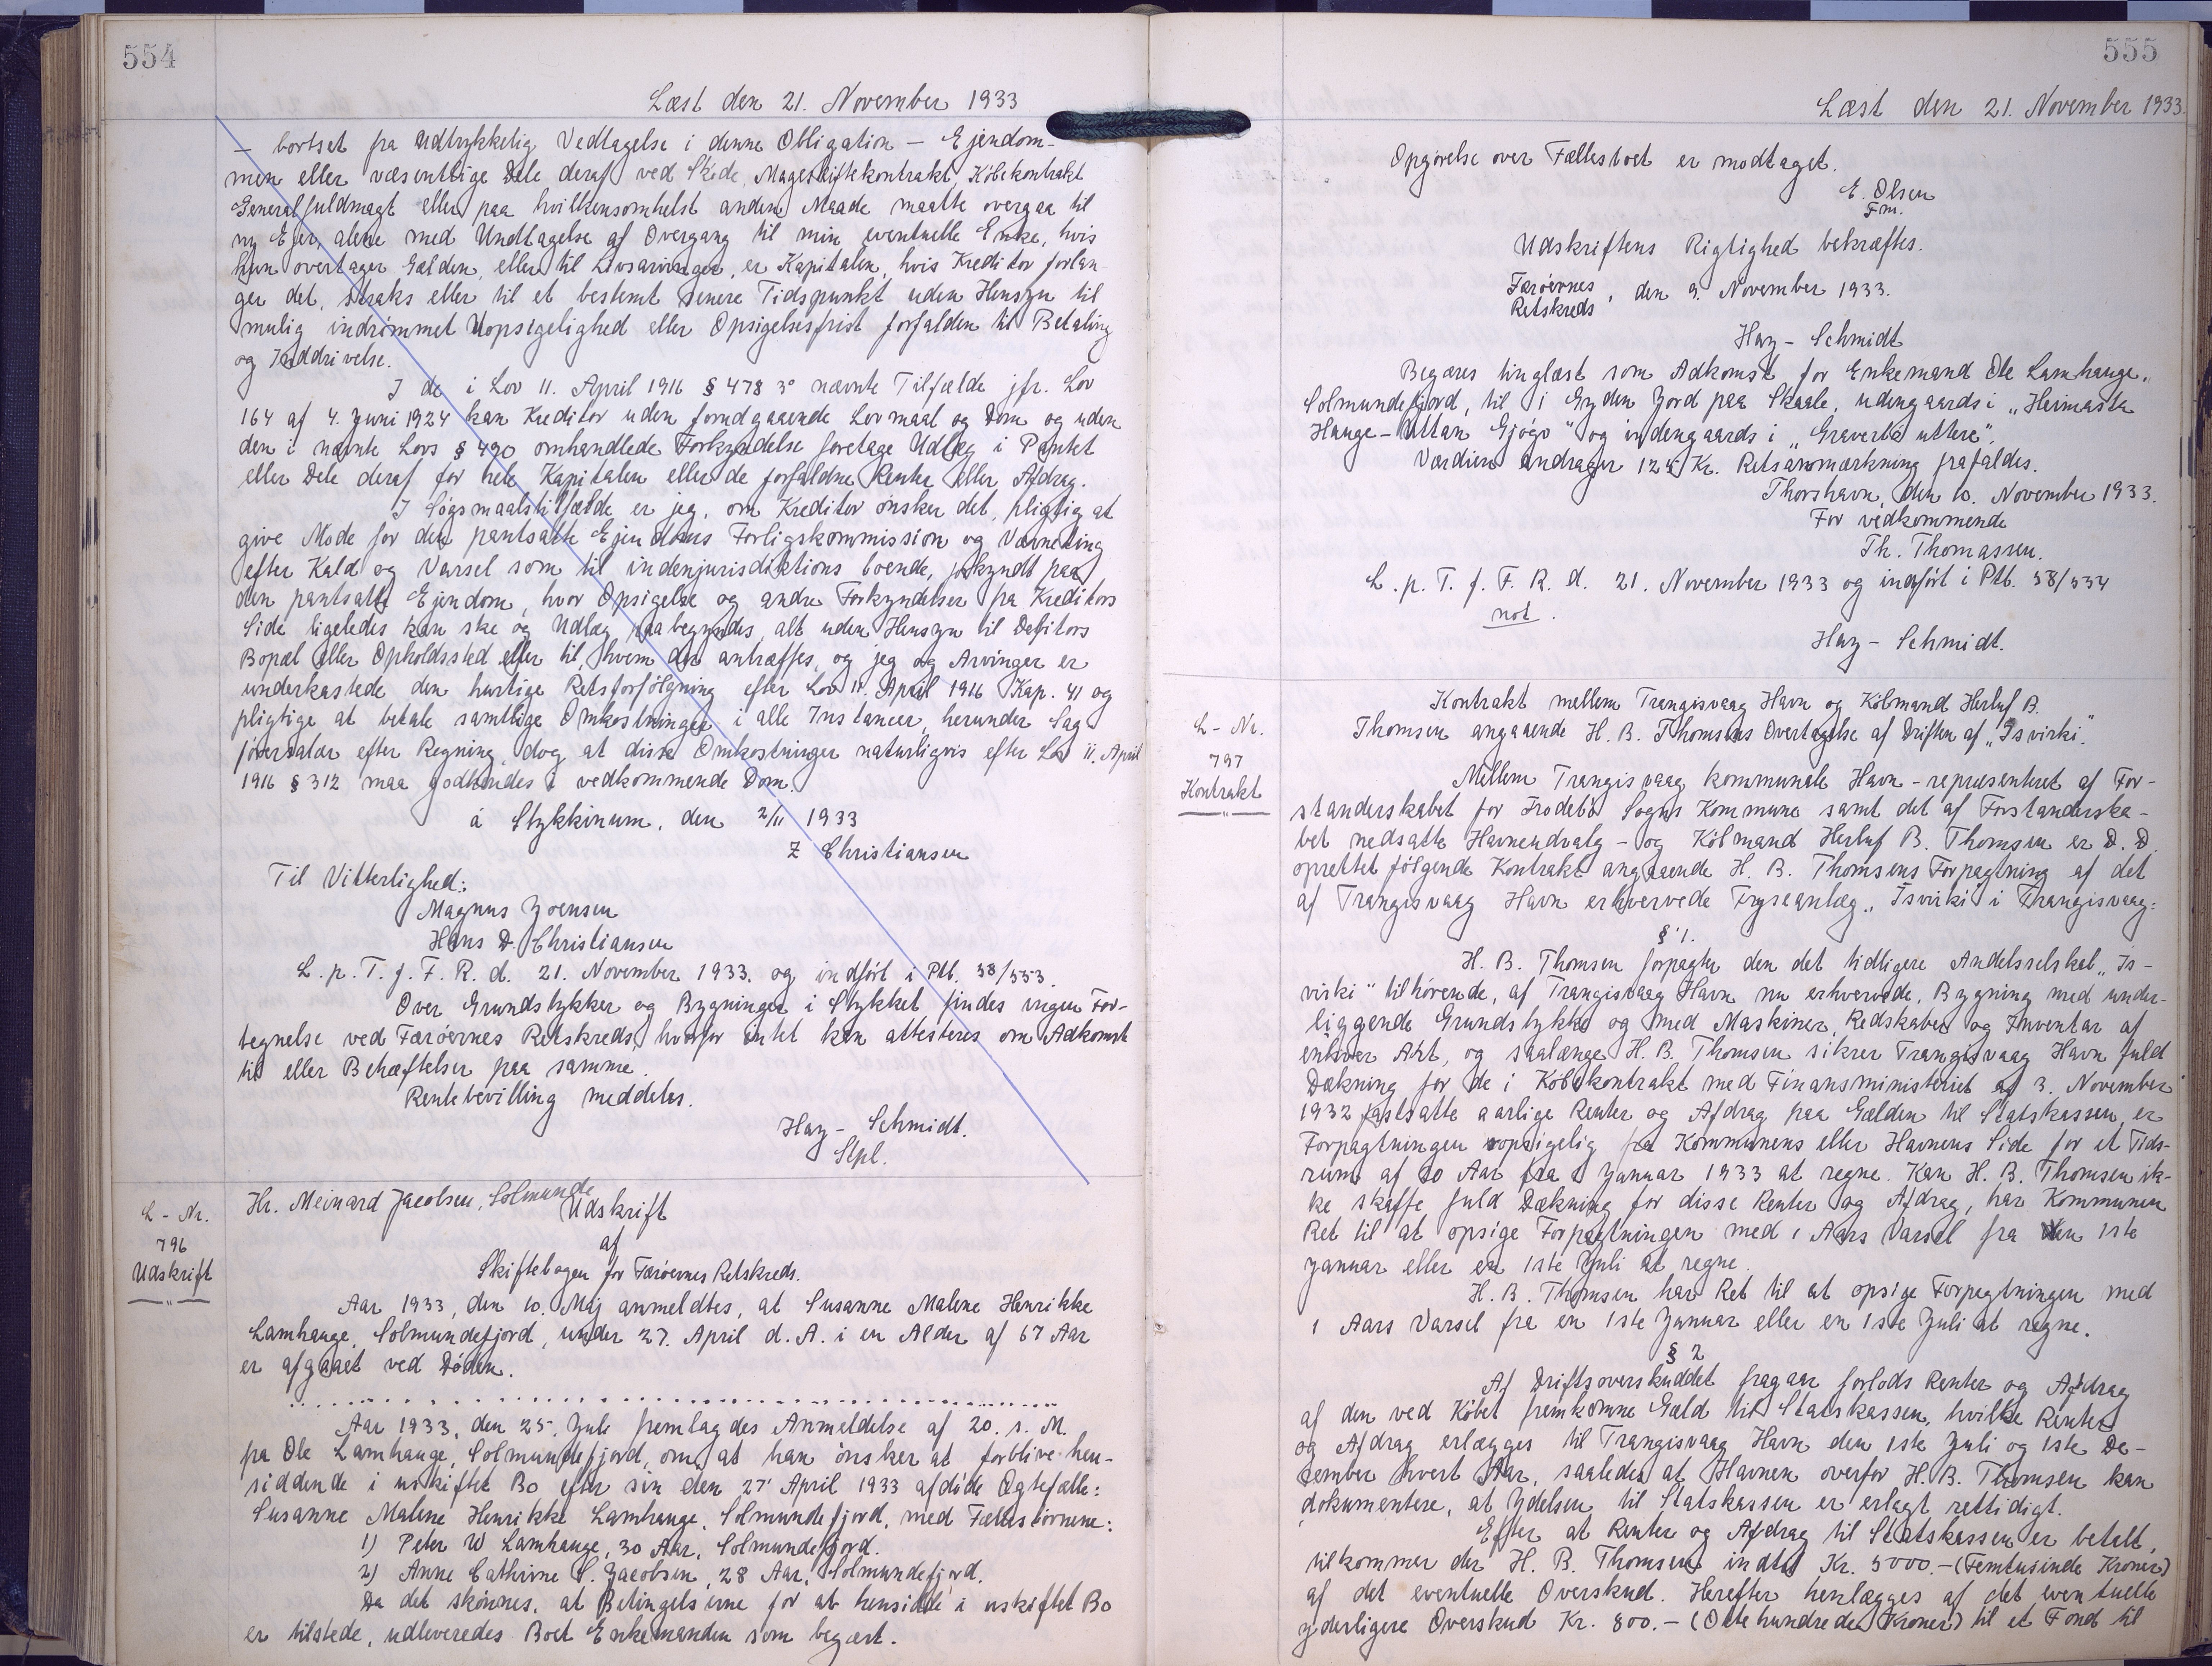 554
Læst den 21. November 1933
— bortset fra udtrykkelig Vedtagelse i denne Obligation — Ejendom-
men eller væsentlige Dele deraf ved Skøde, Mageskiftekontrakt, Købekontrakt
Generalfuldmagt eller paa hvilkensomhelst anden Maade maatte overgaa til
ny Ejer, alene med Undtagelse af Overgang til min eventuelle Enke, hvis
hun overtager Gælden, eller til Livsarvinger, er Kapitalen, hvis Kreditor forlan-
ger det, straks eller til et bestemt senere Tidspunkt uden Hensyn til
mulig indrømmet Uopsigelighed eller Opsigelsesfrist forfalden til Betaling
og Inddrivelse.
I de i Lov 11. April 1916 § 478 3° nævnte Tilfælde jfr. Lov
164 af 4. Juni 1924 kan Kreditor uden forudgaaende Lovmaal og Dom og uden
den i nævnte Lovs § 490 omhandlede Forkyndelse foretage Udlæg i Pantet
eller Dele deraf for hele Kapitalen eller de forfaldne Renter eller Afdrag.
I Søgsmaalstilfælde er jeg, om Kreditor ønsker det, pligtig at
give Møde for den pantsatte Ejendoms Forligskommission og Værneting
efter Kald og Varsel som til indenjurisdiktions boende, forkyndt paa
den pantsatte Ejendom, hvor Opsigelse og andre Forkyndelser fra Kreditors
Side ligeledes kan ske og Udlæg paabegyndes, alt uden Hensyn til Debitors
Bopæl eller Opholdssted eller til, hvem der antræffes, og jeg og Arvinger er
underkastede den hurtige Retsforfølgning efter Lov 11. April 1916 Kap. 41 og
pligtige at betale samtlige Omkostninger i alle Instancer, herunder Sag-
førersalær efter Regning, dog at disse Omkostninger naturligvis efter Lov 11. April
1916 § 312 maa godkendes i vedkommende Dom.
á Stykkinum, den 2/11 1933
Z Christiansen
Til Vitterlighed:
Magnus Joensen
Hans D. Christiansen
L. p. T. f. F. R. d. 21. November 1933. og indført i Ptb. 38/553.
Over Grundstykker og Bygninger i Stykket findes ingen For-
tegnelse ved Færøernes Retskreds, hvorfor intet kan attesteres om Adkomst
til eller Behæftelser paa samme.
Rentebevilling meddeles.
Hay - Schmidt.
Stpl.
L - Nr.
796
Udskrift
Hr. Meinard Jacobsen, Solmunde
Udskrift
af
Skiftebogen for Færøernes Retskreds.
Aar 1933, den 10. Maj anmeldtes, at Susanne Malene Henrikke
Lamhauge, Solmundefjord, under 27. April d. A. i en Alder af 67 Aar
er afgaaet ved Døden.
Aar 1933, den 25. Juli fremlagdes Anmeldelse af 20. s. M.
fra Ole Lamhauge, Solmundefjord, om, at han ønsker at forblive hen-
siddende i uskiftet Bo efter sin den 27' April 1933 afdøde Ægtefælle:
Susanne Malene Henrikke Lamhauge, Solmundefjord, med Fællesbørnene:
1) Peter W Lamhauge, 30 Aar, Solmundefjord.
2) Anne Cathrine S. Jacobsen, 28 Aar, Solmundefjord.
Da det skønnes, at Betingelserne for at hensidde i uskiftet Bo
er tilstede, udleveredes Boet Enkemanden som begært.
555
Læst den 21. November 1933.
Opgørelse over Fællesboet er modtaget.
E. Olsen
Fm.
Udskriftens Rigtighed bekræftes.
Færøernes
Retskreds, den 9. November 1933.
Hay - Schmidt
Begæres tinglæst som Adkomst for Enkemand Ole Lamhauge,
Solmundefjord, til 1 Gylden Jord paa Skaale, udengaards i „Heimasta
Hauge - Uttan Gjógv" og indengaards i „Graverbø uttere".
Værdien andrager 125 Kr. Retsanmærkning frafaldes.
Thorshavn, den 10. November 1933.
For vedkommende
Th. Thomassen.
L. p. T. f. F. R. d. 21. November 1933 og indført i Ptb. 38/554
not.
Hay - Schmidt.
L - Nr.
797
Kontrakt
Kontrakt mellem Trangisvaag Havn og Købmand Herluf B.
Thomsen angaaende H. B. Thomsens Overtagelse af Driften af „Isvirki".
Mellem Trangisvaag kommunale Havn - repræsenteret af For-
standerskabet for Frodebø Sogns Kommune samt det af Forstanderska-
bet nedsatte Havneudvalg - og Købmand Herluf B. Thomsen er D. D.
oprettet følgende Kontrakt angaaende H. B. Thomsens Forpagtning af det
af Trangisvaag Havn erhvervede Fryseanlæg „Isvirki i Trangisvaag:
§ 1.
H. B. Thomsen forpagter den det tidligere Andelsselskab „Is-
virki" tilhørende, af Trangisvaag Havn nu erhvervede, Bygning med under-
liggende Grundstykke og med Maskiner, Redskaber og Inventar af
enhver Art, og saalænge H. B. Thomsen sikrer Trangisvaag Havn fuld
Dækning for de i Købekontrakt med Finansministeriet af 3. November
1932 fastsatte aarlige Renter og Afdrag paa Gælden til Statskassen, er
Forpagtningen uopsigelig fra Kommunens eller Havnens Side for et Tids-
rum af 20 Aar fra 1 Januar 1933 at regne. Kan H. B. Thomsen ik-
ke skaffe fuld Dækning for disse Renter og Afdrag, har Kommunen
Ret til at opsige Forpagtningen med 1 Aars Varsel fra den 1ste
Januar eller en 1ste Juli at regne.
H. B. Thomsen har Ret til at opsige Forpagtningen med
1 Aars Varsel fra en 1ste Januar eller en 1ste Juli at regne.
§ 2
Af Driftsoverskuddet fragaar forlods Renter og Afdrag
af den ved Købet fremkomne Gæld til Statskassen, hvilke Renter
og Afdrag erlægges til Trangisvaag Havn den 1ste Juli og 1ste De-
cember hvert Aar, saaledes at Havnen overfor H. B. Thomsen kan
dokumentere, at Ydelsen til Statskassen er erlagt rettidigt.
Efter at Renter og Afdrag til Statskassen er betalt,
tilkommer der H. B. Thomsen indtil Kr. 5000.- (Femtusinde Kroner)
af det eventuelle Overskud. Herefter henlægges af det eventuelle
yderligere Overskud Kr. 800.- (Ottehundrede Kroner) til et Fond til